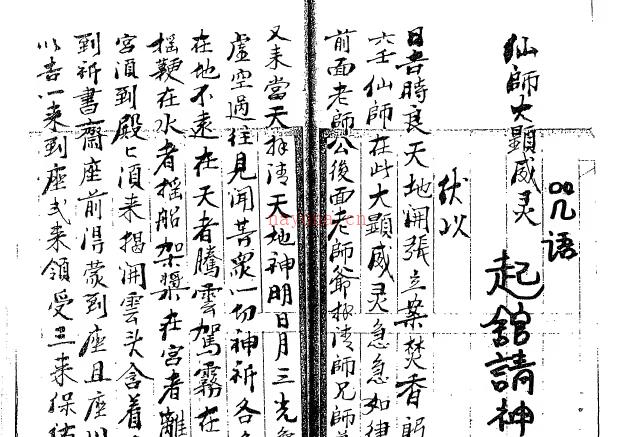 咒语
起館請神
仙師大顯威灵
伏以
日吉時良天地開張立案焚香
六壬仙師在此大顯威灵急急如律
前面老師公後面老師爺拜請師兄師
又来當天拜清天地神明日月三光
虛空過往見聞菩眾一切神祈各
在地不遠在天者騰雲駕霧在
摇鞭在水者摇船架槳在宮者離
宮須到殿上須来揭開雲头含着
到祈書齋座前得蒙到座且座
以吉一来到座式来領受三来保